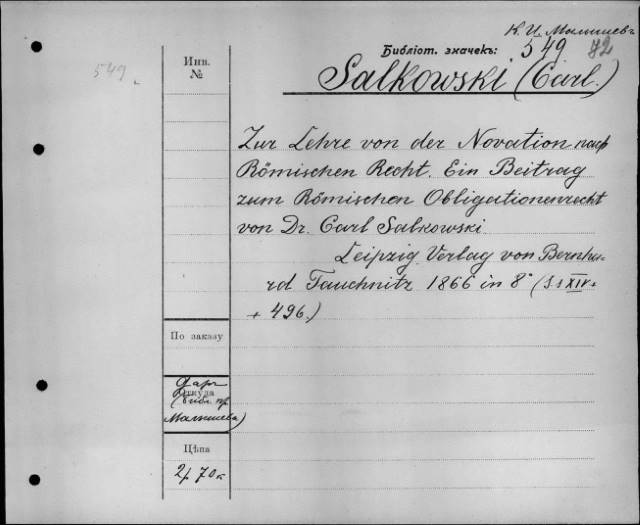 К. И. Малышевъ
Библіот. значекъ: 549 72
549
Инв.
№
Salkowski (Carl.)
Zur Lehre von der Novation nach
Römischen Recht. Ein Beitrag
zum Römischen Obligationenrecht
von Dr. Carl Salkowski
Leipzig. Verlag von Bernha-
rd Tauchnitz 1866 in 8° (SsXIV+
+ 496.)
По заказу
Даръ
Откуда
(библ. пр.
Малышева)
Цѣна
2р 70к